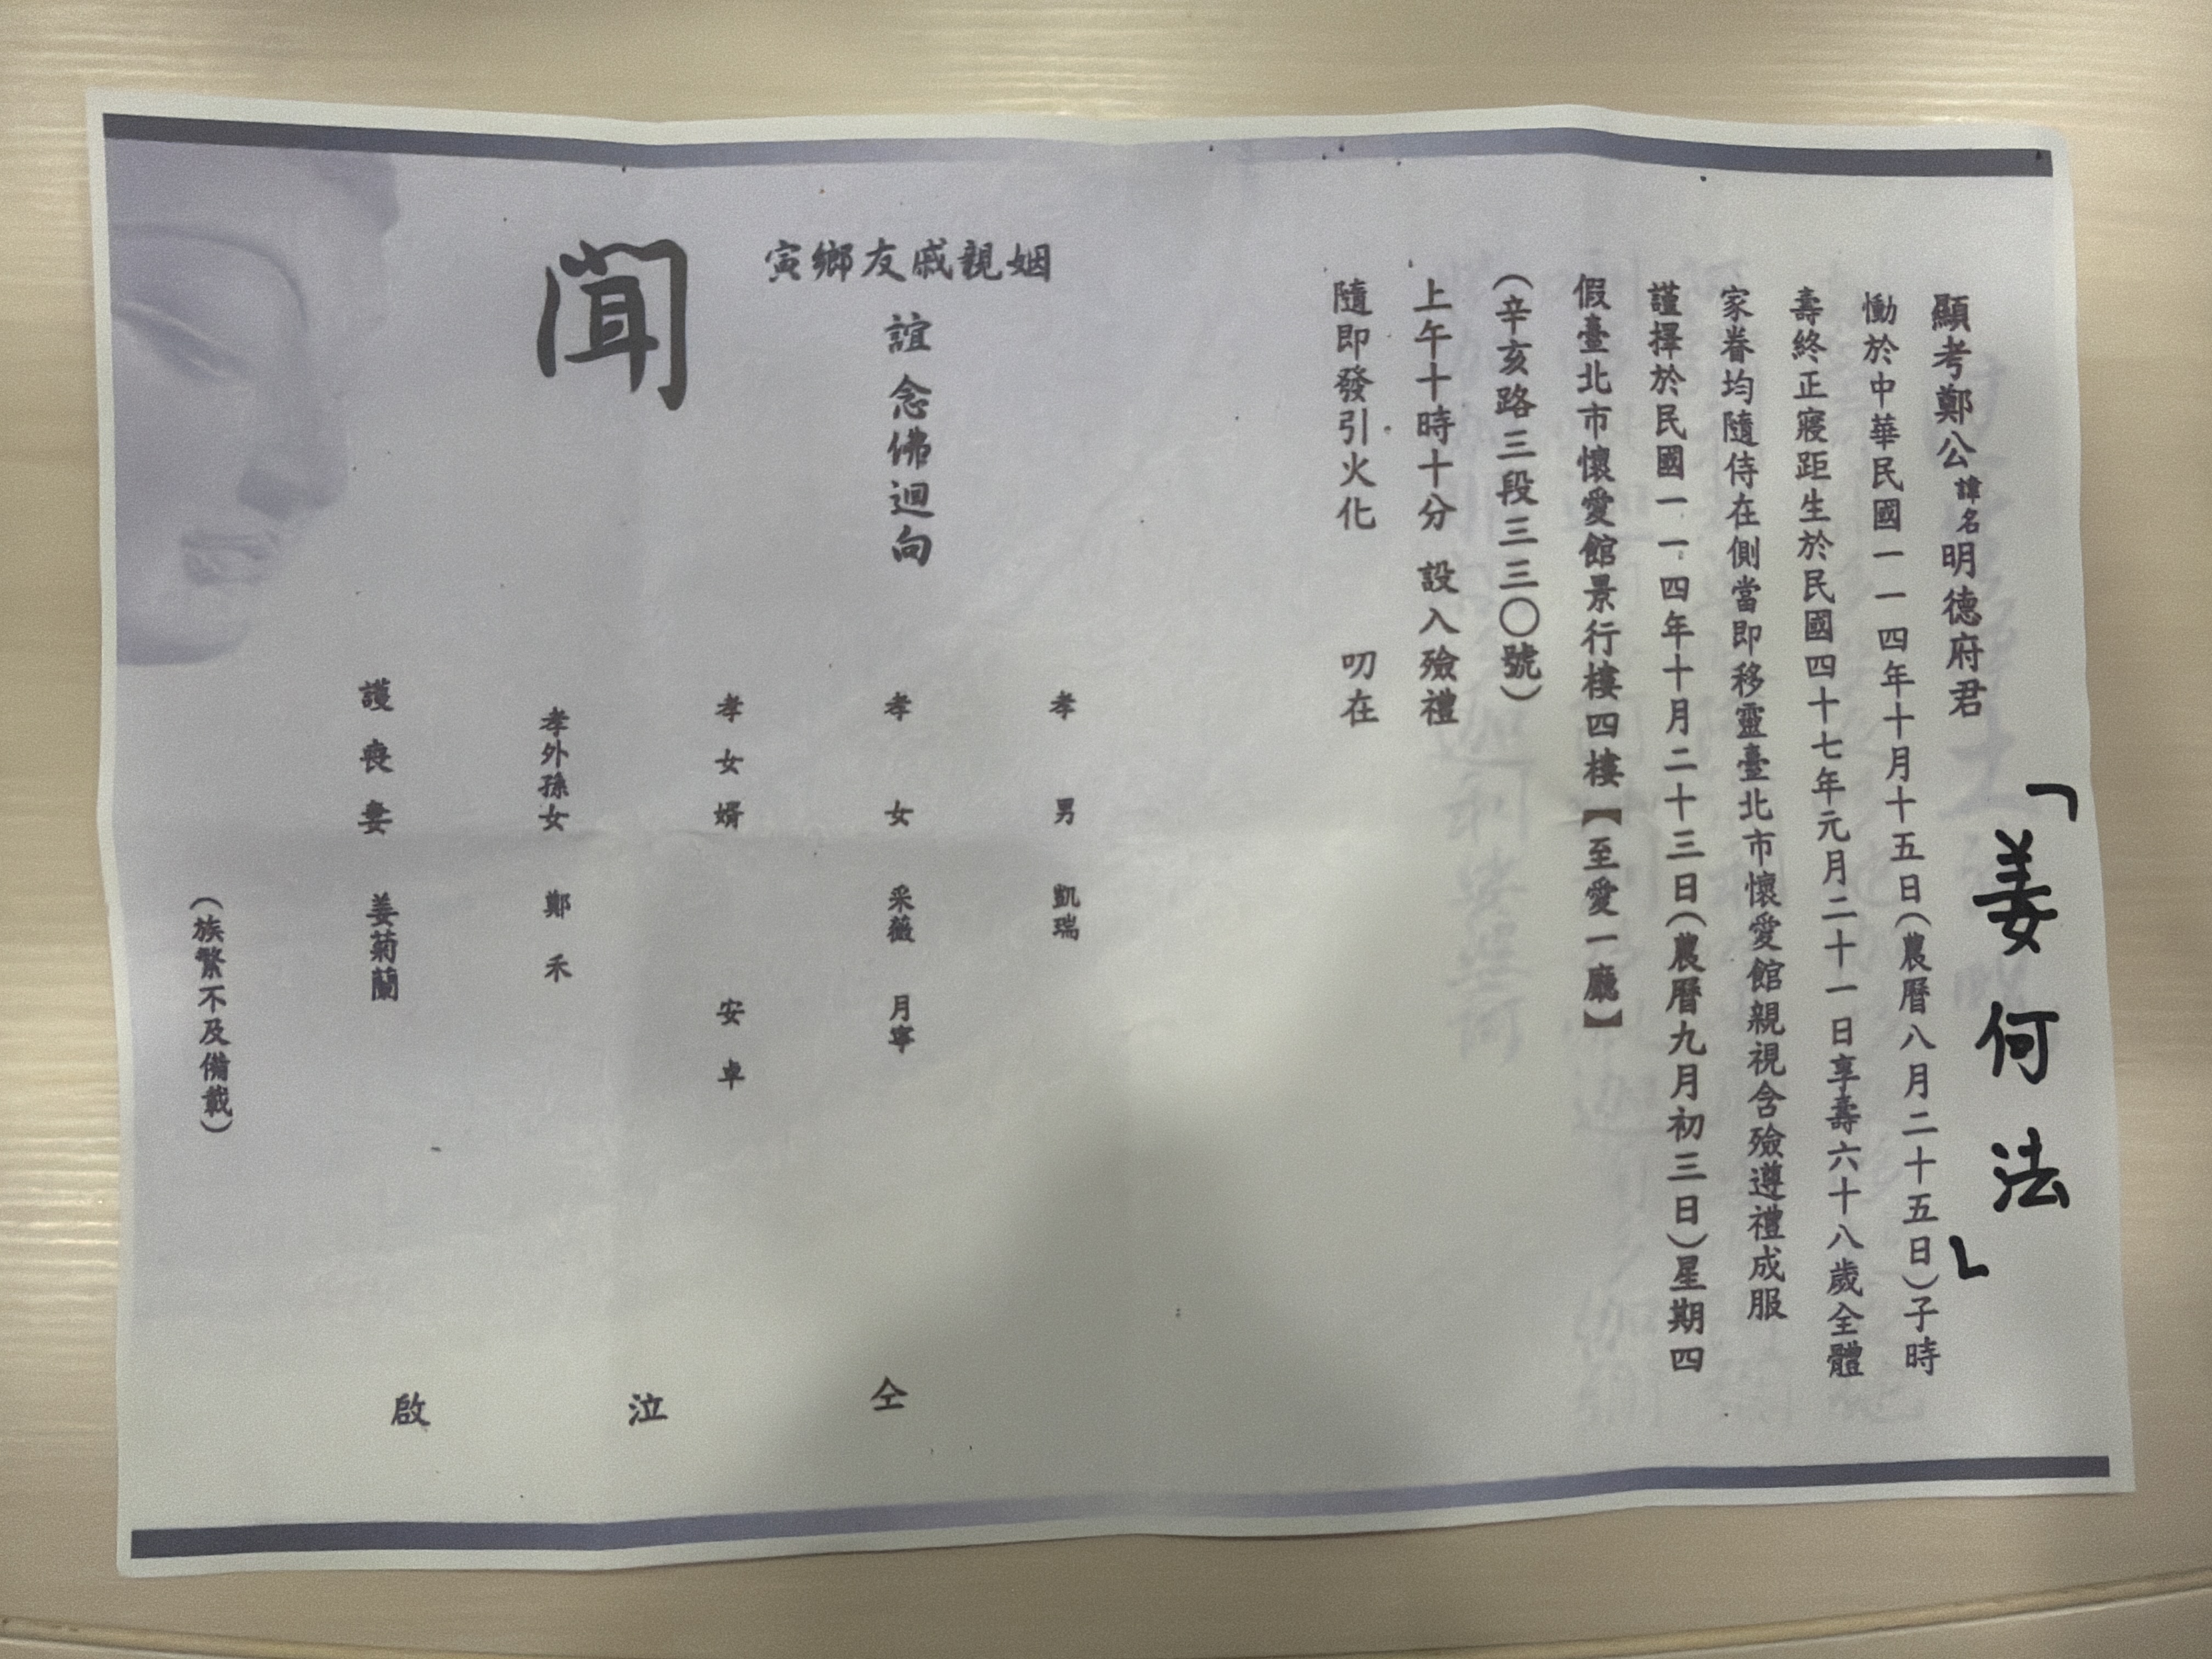 「姜何法」
顯考鄭公諱名明德府君
慟於中華民國一一四年十月十五日(農曆八月二十五日)子時
壽終正寢距生於民國四十七年元月二十一日享壽六十八歲全體
家眷均隨侍在側當即移靈臺北市懷愛館親視含殮遵禮成服
謹擇於民國一一四年十月二十三日(農曆九月初三日)星期四
假臺北市懷愛館景行樓四樓【至愛一廳】
(辛亥路三段三三〇號)
上午十時十分 設入殮禮
隨即發引火化 叨在
姻親戚友鄉寅
誼 念佛迴向
聞
孝男 凱瑞
孝女 采薇 月寧
孝女婿 安卓
孝外孫女 鄭禾
護喪妻 姜菊蘭
(族繁不及備載)
仝 泣 啟